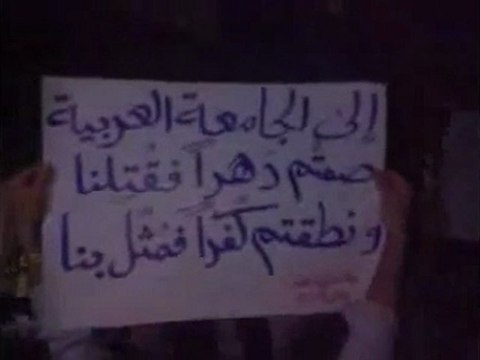 إلى الجامعة العربية
صمتم دهراً فقُتِلنا
و نطقتم كفراً فمُثّل بنا